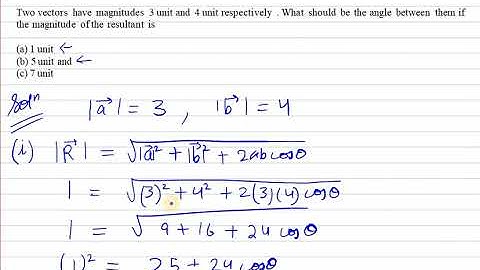 Two vectors have magnitudes 3 unit and 4 unit respectively . What should be the angle between them if
the magnitude of the resultant is
(a) 1 unit ←
(b) 5 unit and ←
(c) 7 unit
Solⁿ |a⃗| = 3 , |b⃗| = 4
(i) |R⃗| = √|a⃗|² + |b⃗|² + 2ab cosθ
1 = √(3)² + 4² + 2(3)(4) cosθ
1 = √9 + 16 + 24 cosθ
(1)² = 25 + 24 cosθ